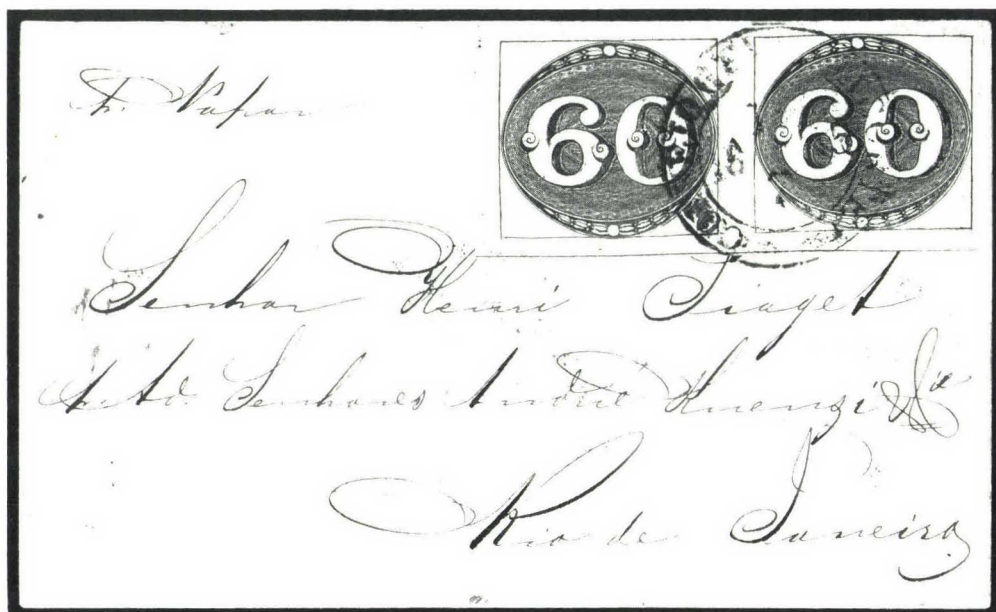 60 60
Pr. Vapor
Senhor Henri Piaget
Senhores André Kuenzi & Cie
Rio de Janeiro